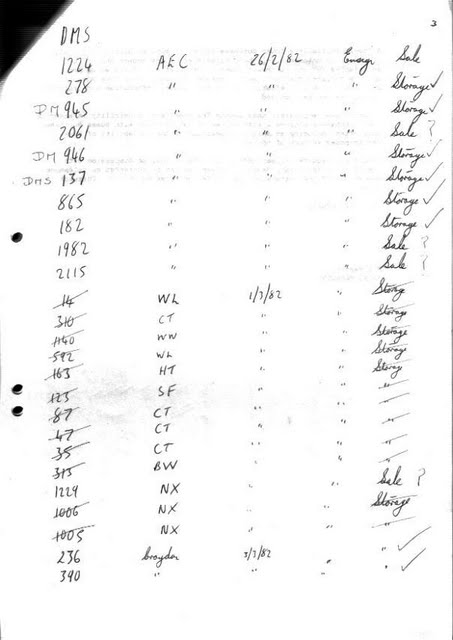 3
DMS
1224 AEC 26/2/82 Ensign Sale
278 " " " Storage ✓
DM 945 " " " Storage ✓
2061 " " " Sale ?
DM 946 " " " Storage ✓
DMS 137 " " " Storage ✓
865 " " " Storage ✓
182 " " " Storage ✓
1982 " " " Sale ?
2115 " " " Sale ?
14 WL 1/3/82 " Storage
310 CT " " Storage
1140 WW " " Storage
592 WL " " Storage
163 HT " " Storag
123 SF " " "
87 CT " " "
47 CT " " "
35 CT " " "
313 BW " " "
1229 NX " " Sale ?
1006 NX " " Storage
1005 NX " " "
236 Croydon 3/3/82 " " ✓
390 " " " " ✓